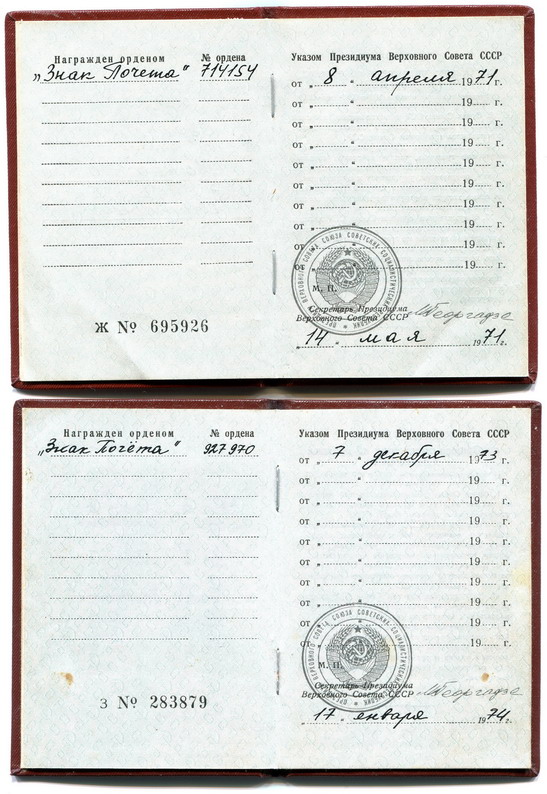 Награжден орденом № ордена
„Знак Почета" 714154
Указом Президиума Верховного Совета СССР
от „ 8 " апреля 1971 г.
от „ " 19 г.
от „ " 19 г.
от „ " 19 г.
от „ " 19 г.
от „ " 19 г.
от „ " 19 г.
от „ " 19 г.
от „ " 19 г.
от „ " 19 г.
ПРЕЗИДИУМ ВЕРХОВНОГО СОВЕТА СОЮЗА СОВЕТСКИХ СОЦИАЛИСТИЧЕСКИХ РЕСПУБЛИК
М. П.
Секретарь Президиума
Верховного Совета СССР МГеоргадзе
„14 " мая 1971 г.
Ж № 695926
Награжден орденом № ордена
„Знак Почёта" 927970
Указом Президиума Верховного Совета СССР
от „ 7 " декабря 1973 г.
от „ " 19 г.
от „ " 19 г.
от „ " 19 г.
от „ " 19 г.
от „ " 19 г.
от „ " 19 г.
от „ " 19 г.
от „ " 19 г.
от „ " 19 г.
ПРЕЗИДИУМ ВЕРХОВНОГО СОВЕТА СОЮЗА СОВЕТСКИХ СОЦИАЛИСТИЧЕСКИХ РЕСПУБЛИК
М. П.
Секретарь Президиума
Верховного Совета СССР МГеоргадзе
„17 " января 1974 г.
З № 283879